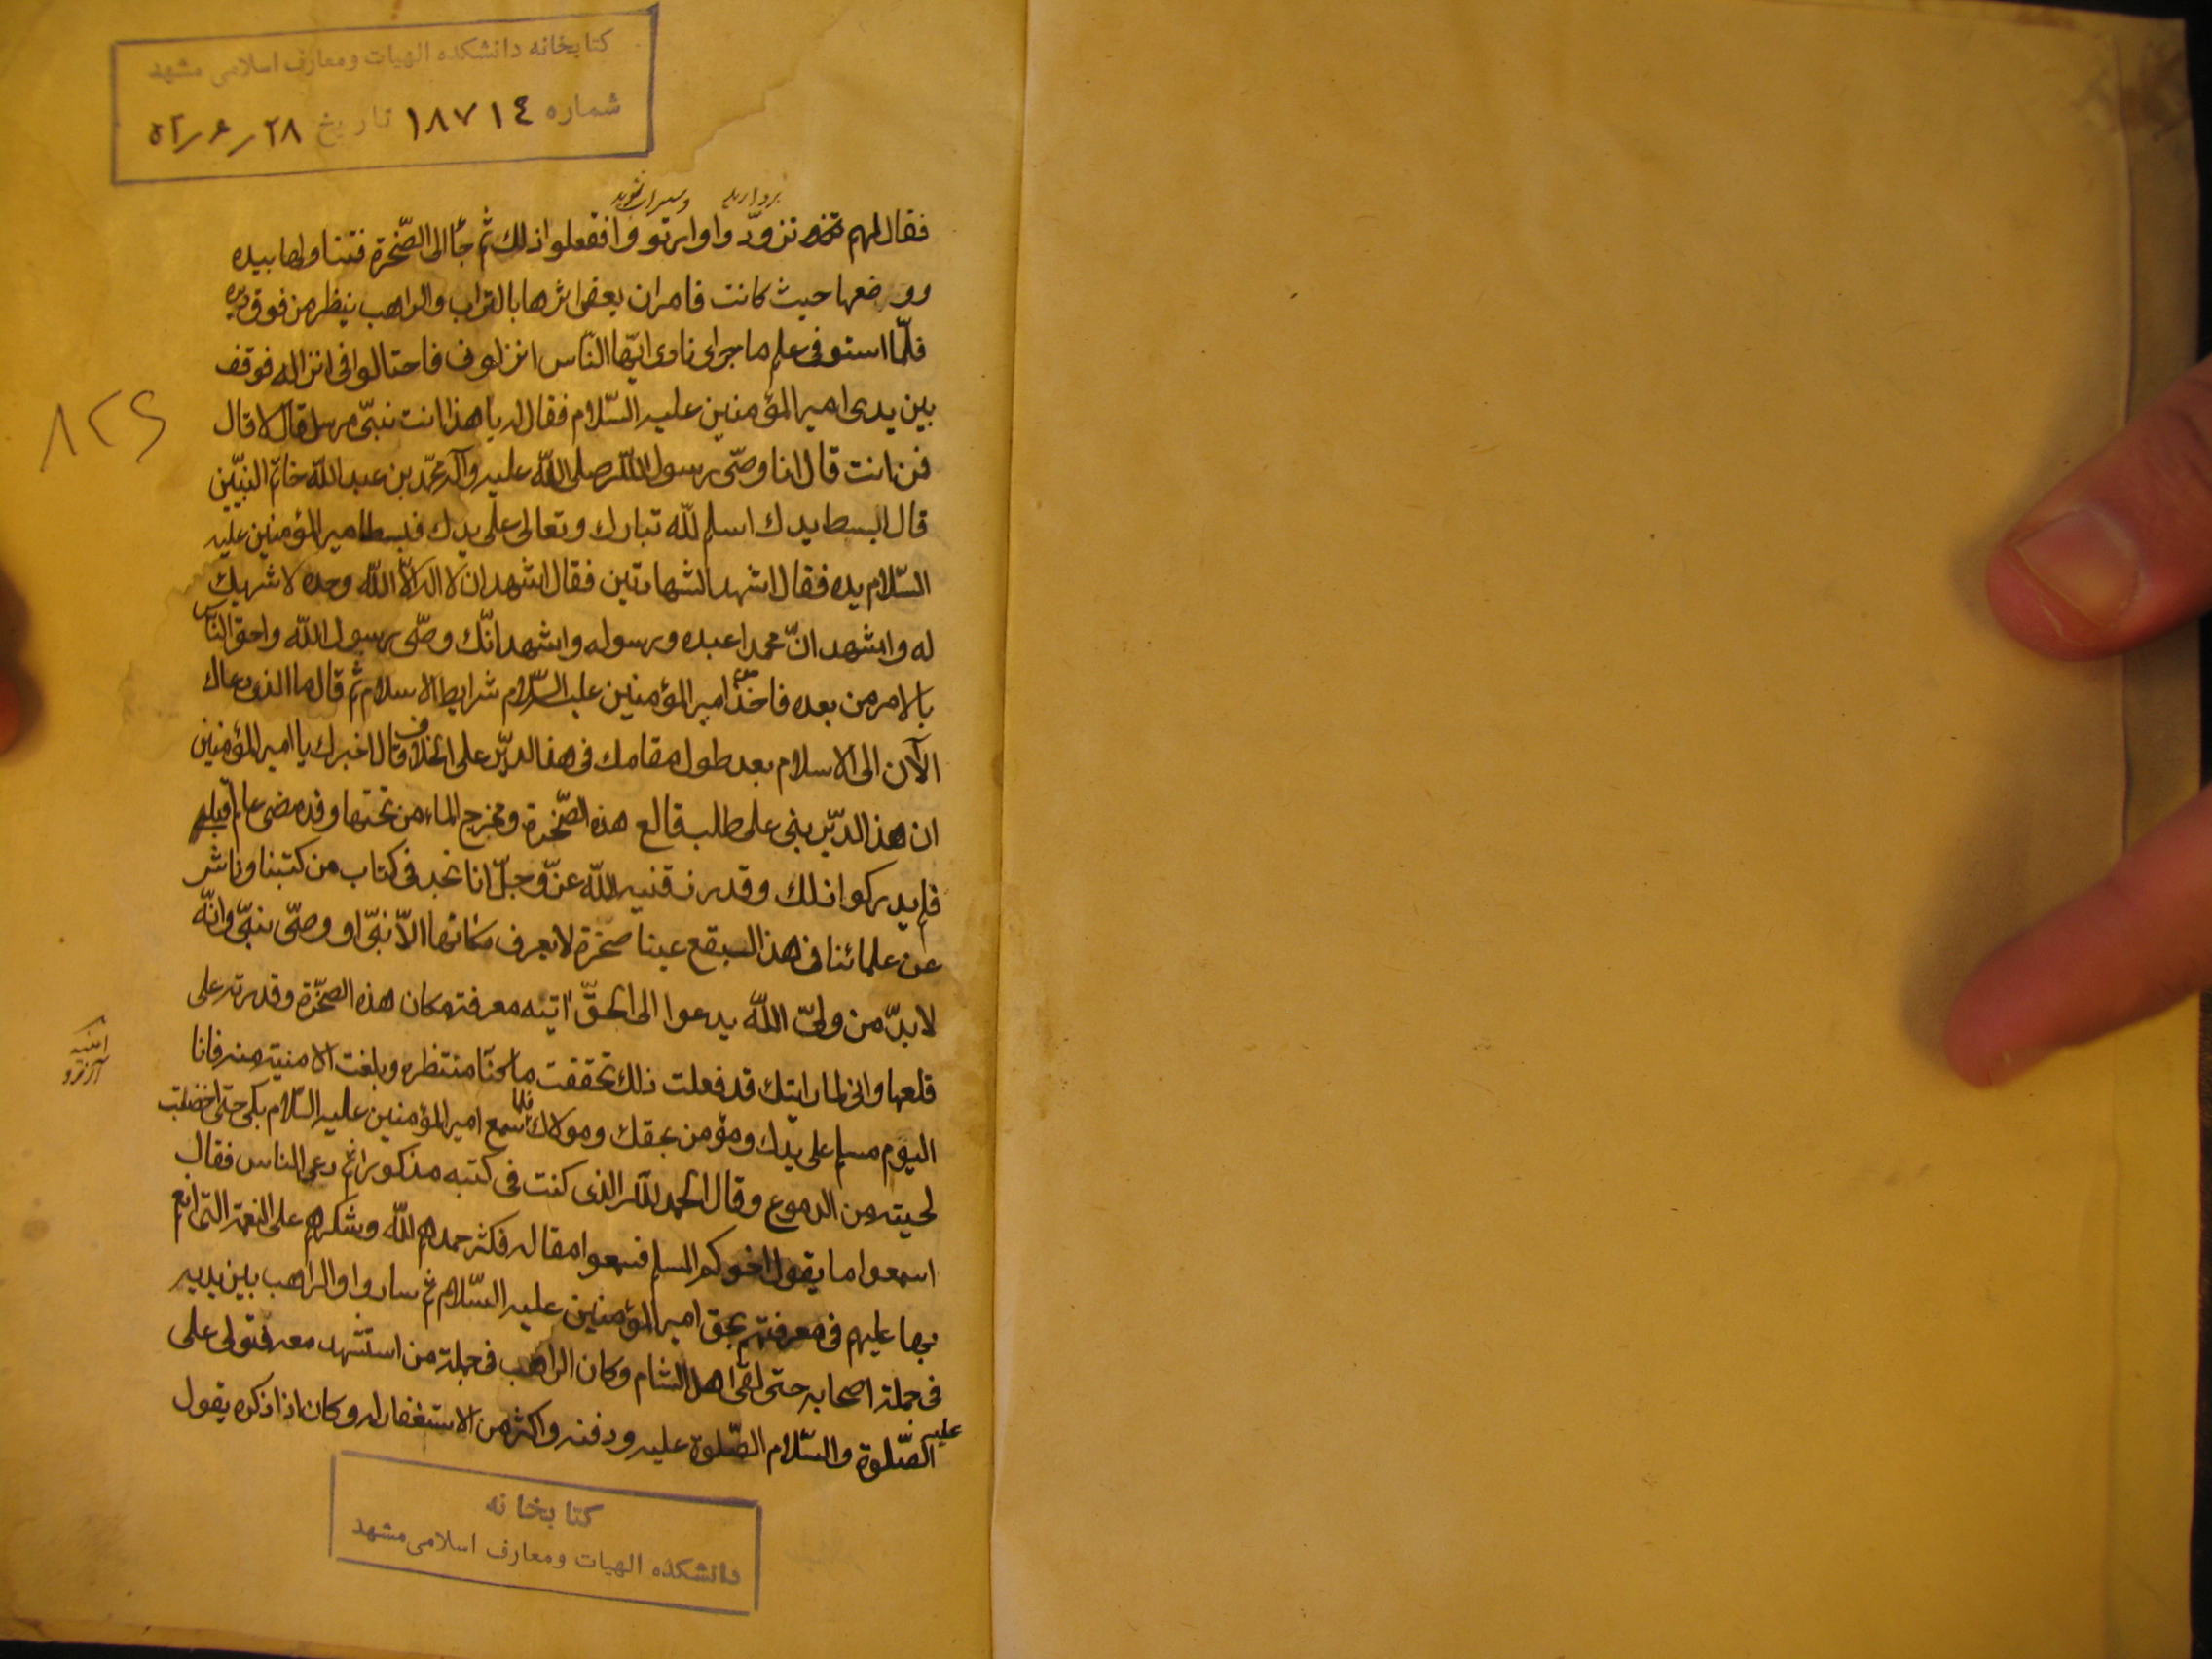 کتابخانه دانشکده الهیات ومعارف اسلامی مشهد
شماره ١٨٧١٤ تاریخ
بردارید وسیراب شوید
فقال لهم تزودوا وارتووا ففعلوا ذلك ثم جأ الى الصّخرة فتناولها بيده
ووضعها حيث كانت فامر ان يعفى اثرها بالتراب والراهب ينظر من فوق ديره
فلمّا استوفى علم ما جرى نادى ايّها النّاس انزلونى فاحتالوا فى انزاله فوقف
بين يدى امير المؤمنين عليه السّلام فقال له يا هذا انت نبىّ مرسل قال لا قال
فمن انت قال انا وصّى رسول اللّه صلى اللّه عليه وآله محمّد بن عبد اللّه خاتم النبيّين
قال ابسط يدك اسلم للّه تبارك وتعالى على يدك فبسط امير المؤمنين عليه
السّلام يده فقال اشهد الشهادتين فقال اشهد ان لا اله الّا اللّه وحده لا شريك
له واشهد انّ محمدا عبده ورسوله واشهد انّك وصّى رسول اللّه واحق الناس
بالامر من بعده فاخذ امير المؤمنين عليه السّلام شرايط الاسلام ثم قال ما الذى دعاك
الآن الى الاسلام بعد طول مقامك فى هذا الديّر على الخلاف قال اخبرك يا امير المؤمنين
ان هذا الديّر بنى على طلب قالع هذه الصّخرة ومخرج الماء من تحتها وقد مضى عالم قبلى
فلم يدركوا ذلك وقد رزقنيه اللّه عزّ وجلّ انا نجد فى كتاب من كتبنا
عن علمائنا فى هذا السبقع عينا صخرة لا يعرف مكانها الاّ نبىّ او وصّى نبىّ وانّه
لا بدّ من ولىّ اللّه يدعوا الى الحقّ آيته معرفة مكان هذه الصخّرة وقدرته على
قلعها وانى لما رايتك قد فعلت ذلك تحققت ما كنا منتظره وبلغت الامنية منه فانا
امنیه
آرزو
اليوم مسلم على يدك ومؤمن بحقك ومولاك فلما سمع امير المؤمنين عليه السّلام بكى حتى اخضلت
لحيته من الدموع وقال الحمد للّه الذى كنت فى كتبه مذكورا ثم دعى الناس فقال
اسمعوا ما يقول اخوكم المسلم فسمعوا مقاله فكثر حمدهم للّه وشكرهم على النعمة التى انعم
بها عليهم فى معرفتهم بحق امير المؤمنين عليه السّلام ثم ساروا والراهب بين يديه
فى جملة اصحابه حتى لقى اهل الشام وكان الراهب فى جملة من استشهد معه فتولى على
عليه الصّلوة والسّلام الصّلوة عليه ودفنه واكثر من الاستغفار له وكان اذا ذكره يقول
کتابخانه
دانشکده الهیات ومعارف اسلامی مشهد